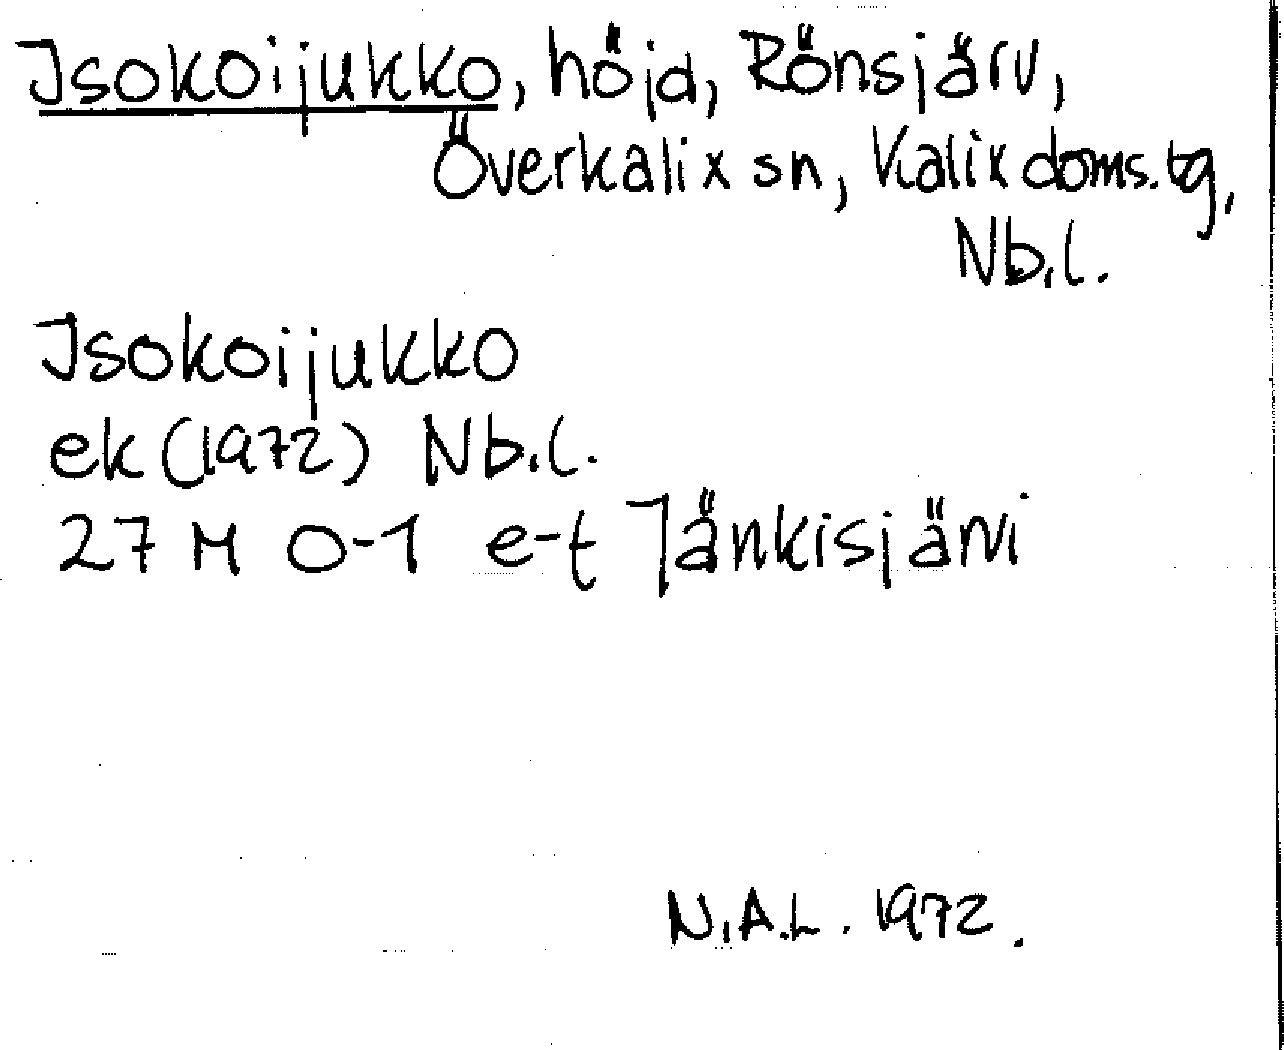 Isokoijukko, höjd, Rönsjärv,
Överkalix sn, Kalix doms.tg,
Nb.l.
Isokoijukko
ek (1972) Nb.l.
27 M 0-1 e-t Jänkisjärvi
N.A.L. 1972.